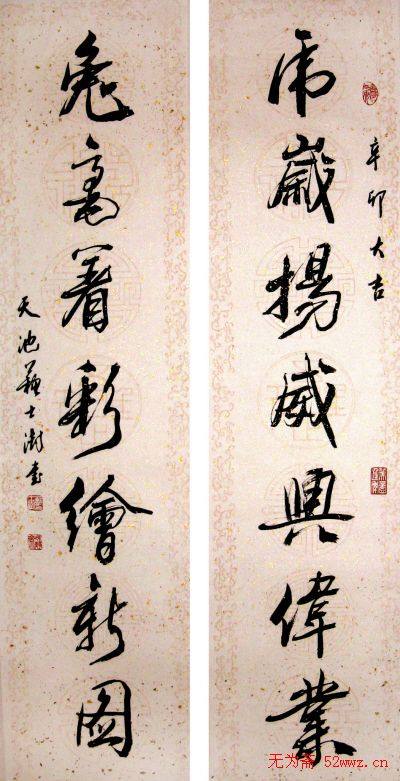 辛卯大吉
虎歲揚威興偉業
兔毫着彩繪新圖
天池蘇士澍書
无为斋 52wwz.cn